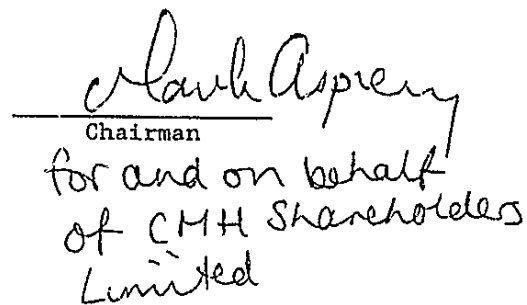 Mark Asprey
Chairman
for and on behalf
of CMH Shareholders
Limited